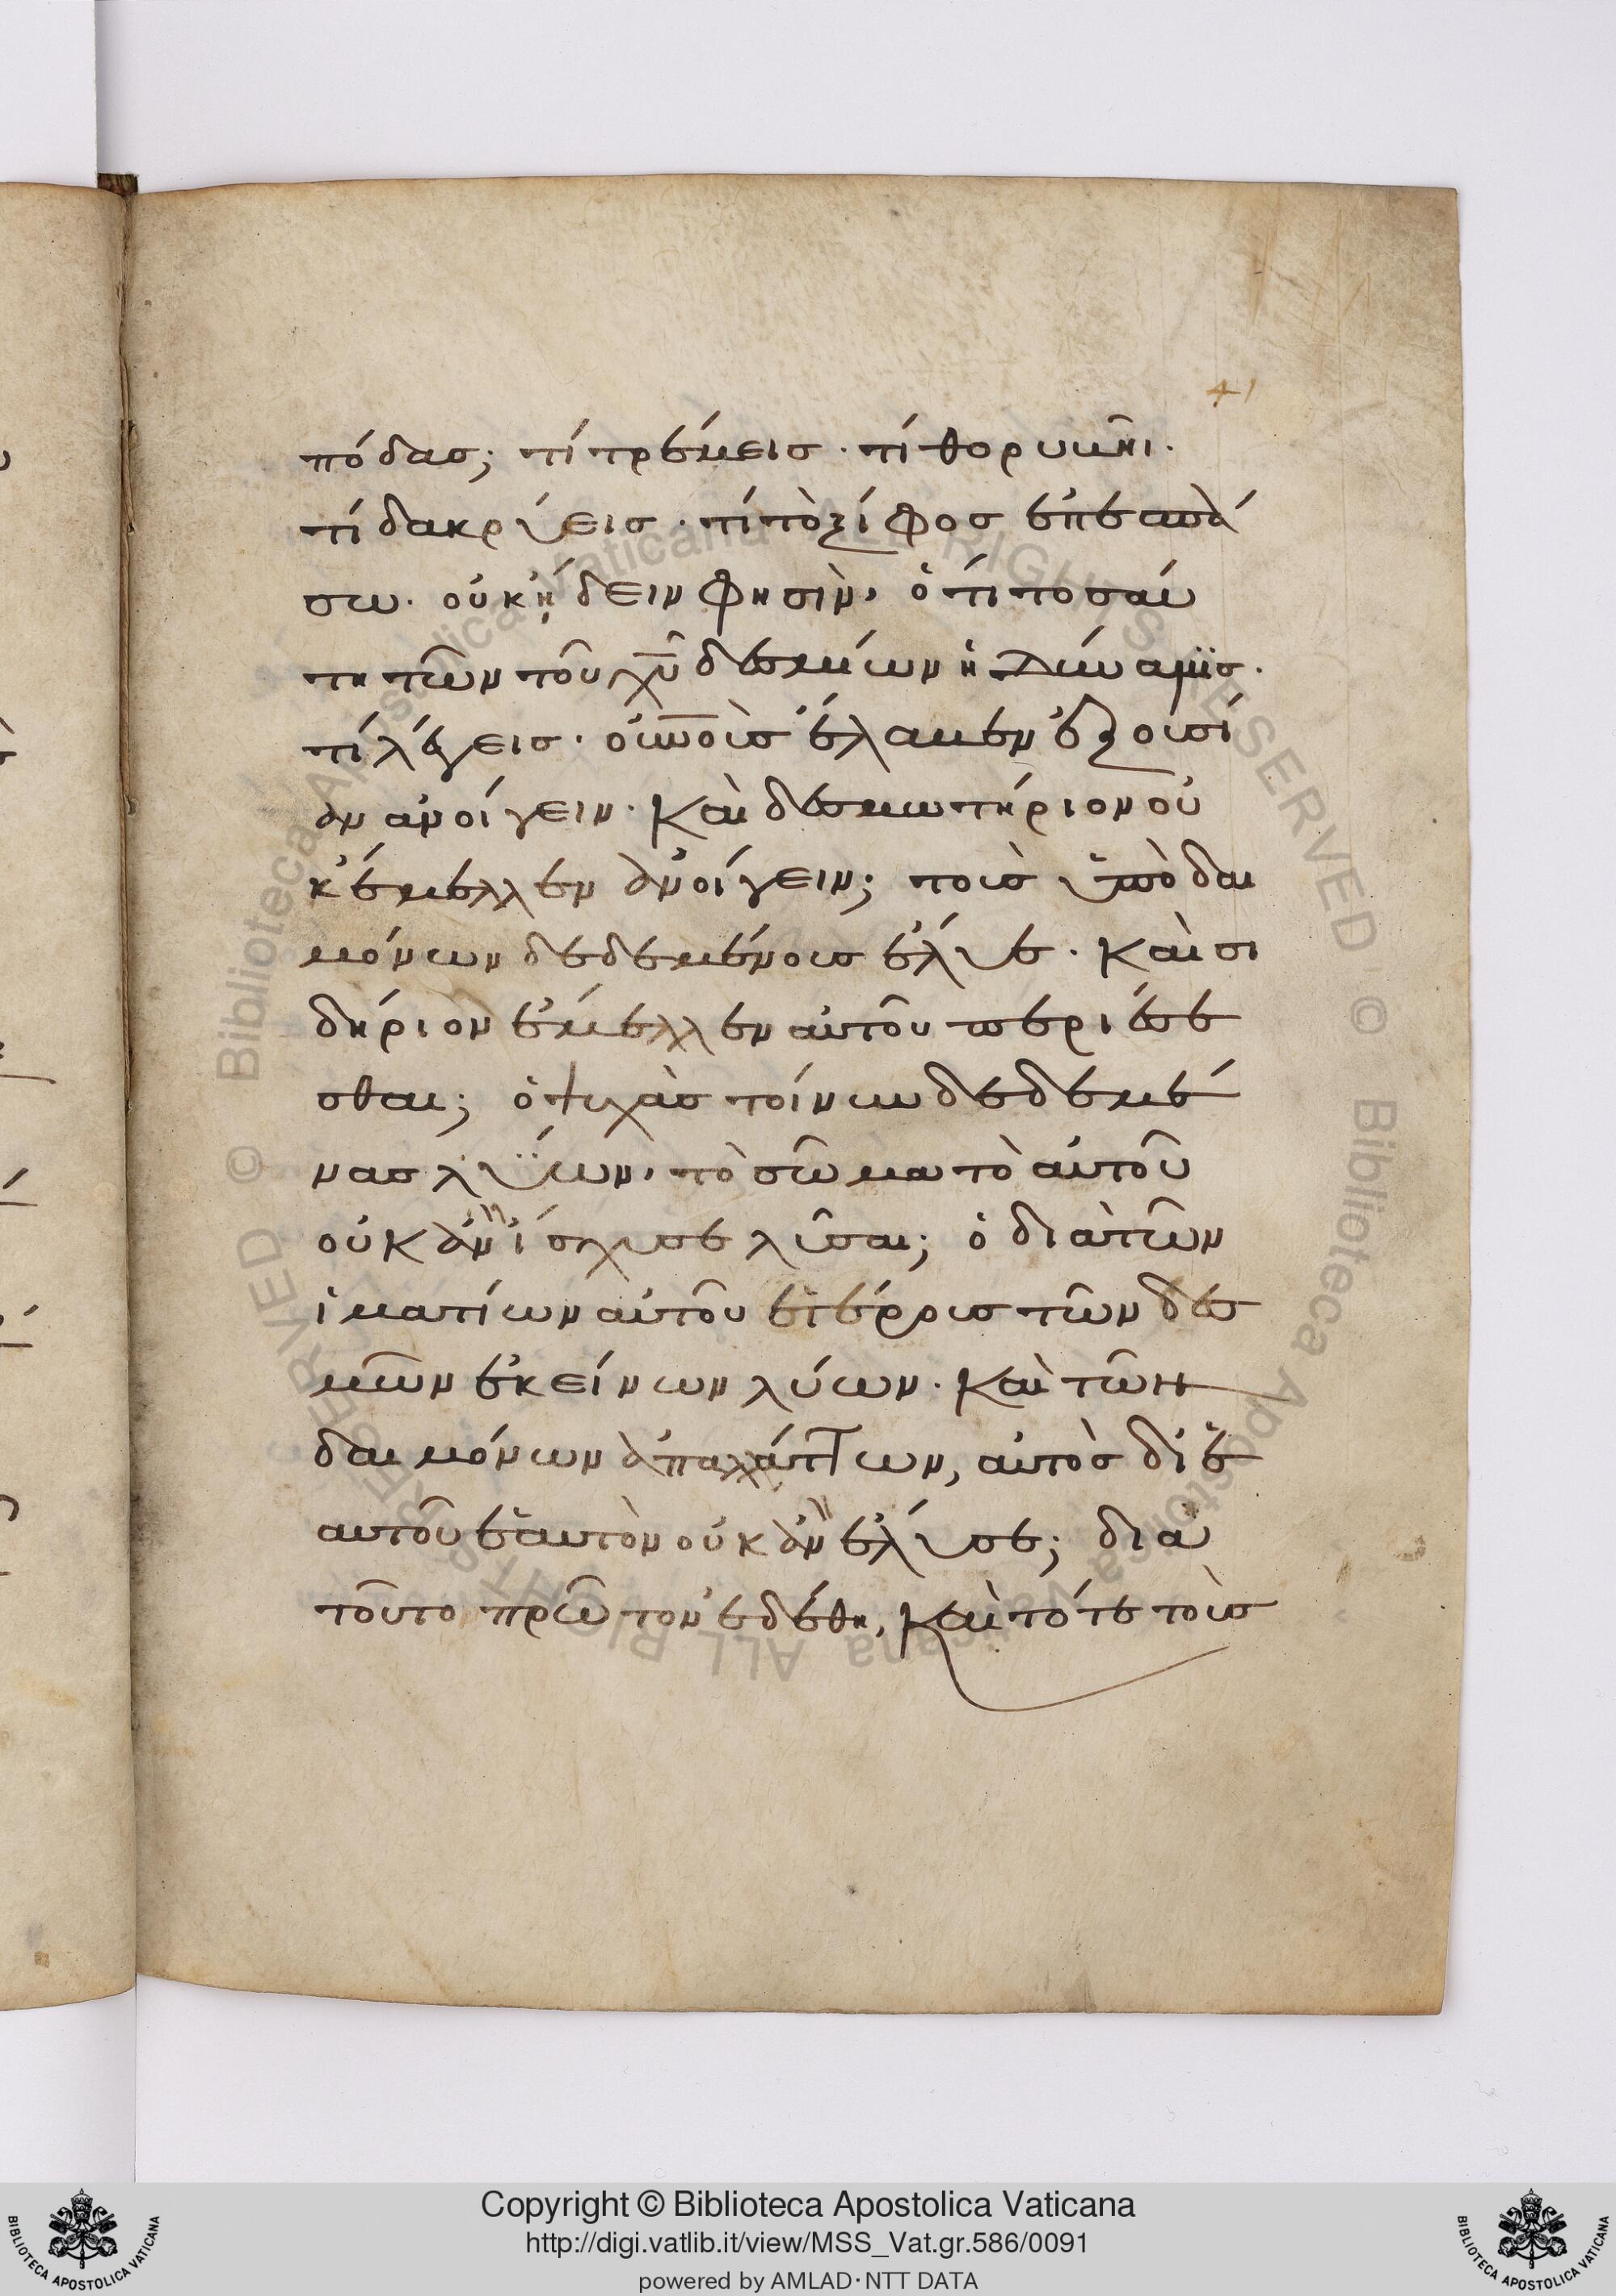 41
πόδας; τί τρέμεις · τί θορυβῆι ·
τί δακρύεις · τί τὸ ξίφος ἐπεσπά
σω · οὐκ ἤδειν φησὶν, ὅτι τοσαύ
τη τῶν τοῦ χῦ δεσμίων ἡ δύναμις ·
τί λέγεις · οὐνοὺς ἔλαβεν ἐξουσί
αν ἀνοίγειν · καὶ δεσμωτήριον οὐ
κ ἔμελλεν ἀνοίγειν; τοὺς ὑπὸ δαι
μόνων δεδεμένους ἔλυε · καὶ σι
δήριον ἔμελλεν αὐτοῦ περιέσε
σθαι; ὁ ψυχὰς τοίνυν δεδεμέ
νας λύων, τὸ σῶμα τὸ αὐτοῦ
οὐκ ἂν ἴσχυσε λῦσαι; ὁ διὰ τῶν
ἱματίων αὐτοῦ ἑτέρους τῶν δεσ
μῶν ἐκείνων λύων · καὶ τῶν
δαιμόνων ἀπαλλάττων, αὐτὸς δι ἑ
αυτοῦ ἑαυτὸν οὐκ ἂν ἔλυσε; διὰ
τοῦτο πρῶτον ἐδέθη, καὶ τότε τοὺς
Copyright © Biblioteca Apostolica Vaticana
http://digi.vatlib.it/view/MSS_Vat.gr.586/0091
powered by AMLAD·NTT DATA
BIBLIOTECA APOSTOLICA VATICANA
BIBLIOTECA APOSTOLICA VATICANA